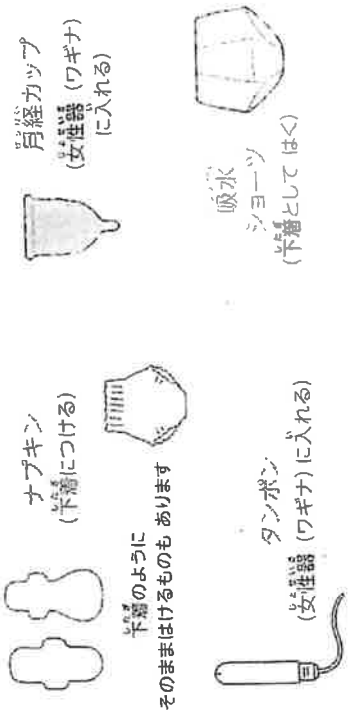 ナプキン
(下着につける)
下着のように
そのままはけるものも あります
月経カップ
(女性器 (ワギナ)
に入れる)
タンポン
(女性器 (ワギナ) に入れる)
吸水
ショーツ
(下着として はく)